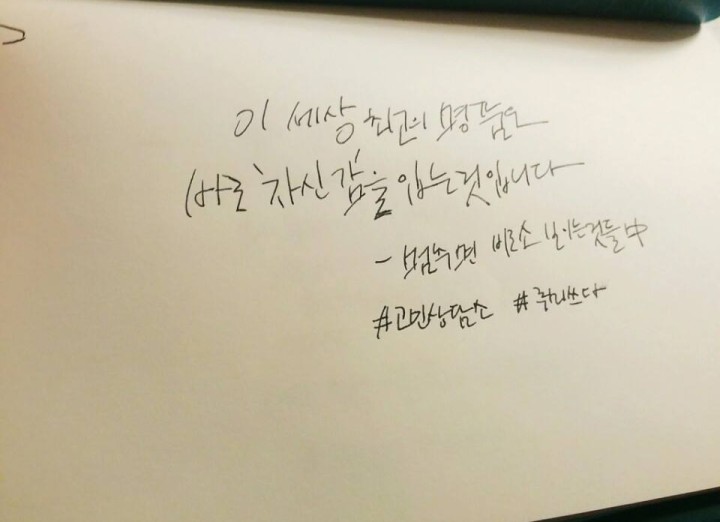 이 세상 최고의 명품은
바로 '자신감'을 입는것입니다
- 멈추면 비로소 보이는것들 中
#고민상담소 #쥐리쓰다